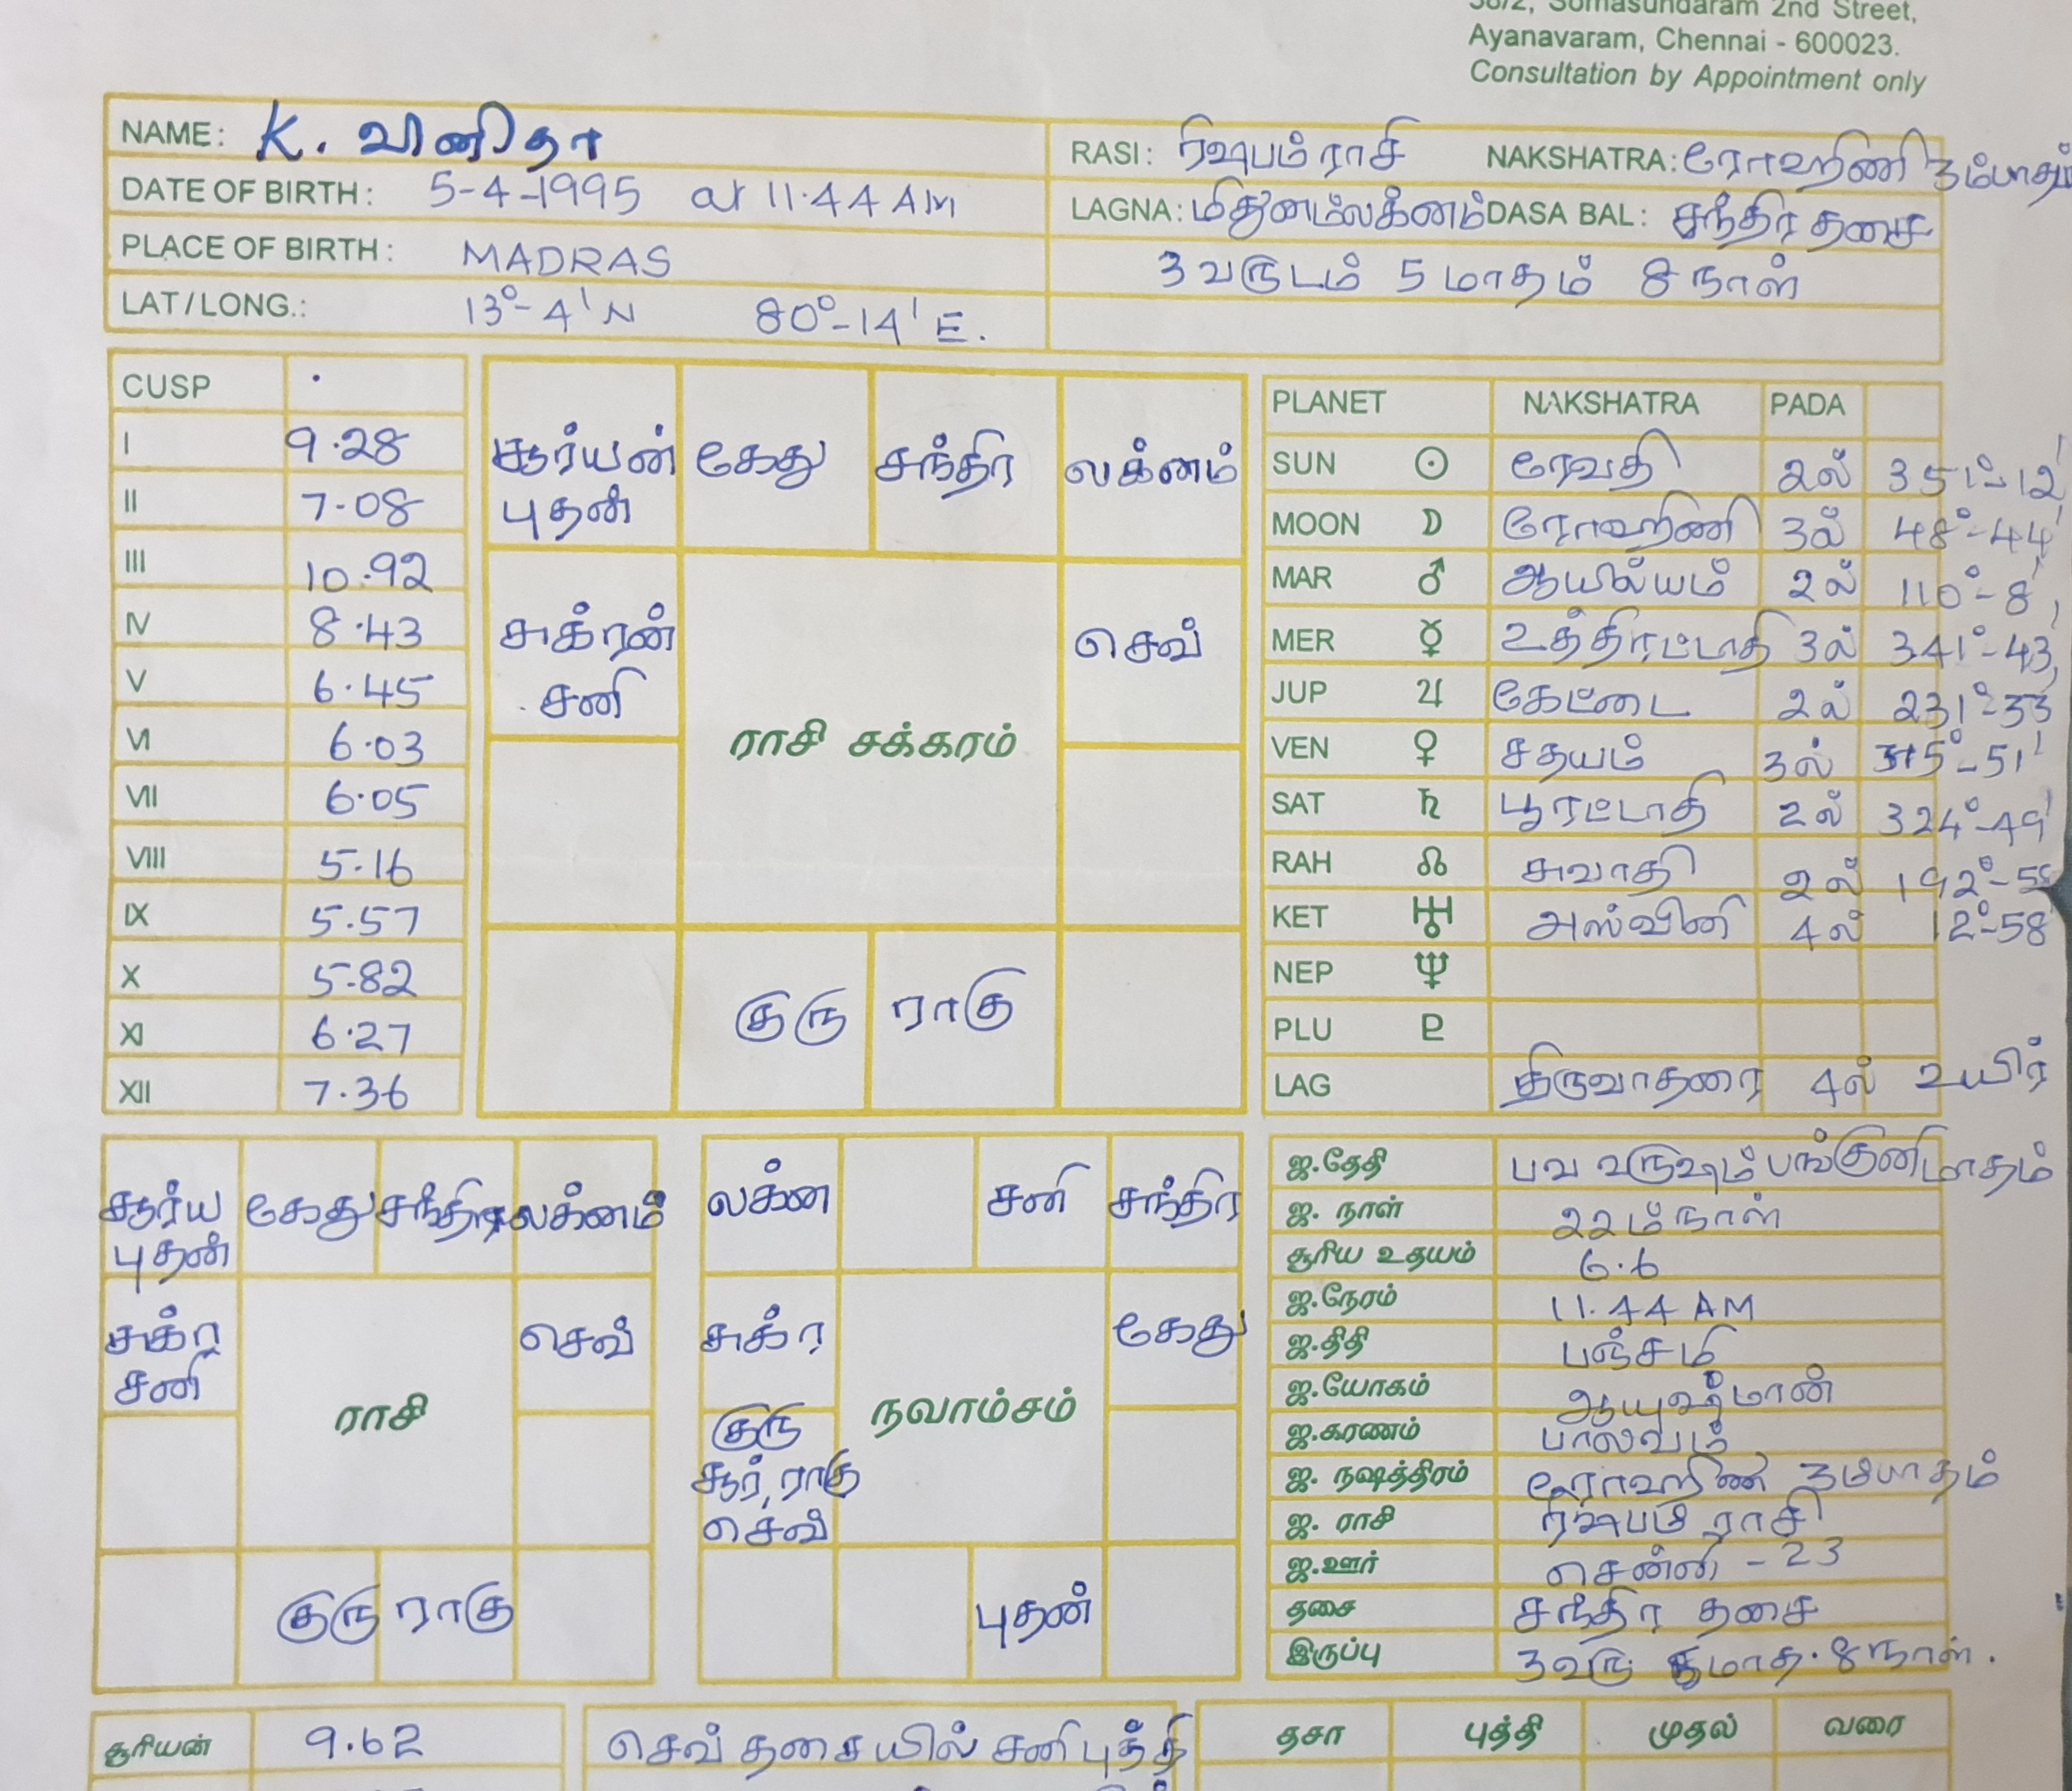 38/2, Somasundaram 2nd Street,
Ayanavaram, Chennai - 600023.
Consultation by Appointment only
NAME: K. வினிதா
DATE OF BIRTH: 5-4-1995 at 11.44 AM
PLACE OF BIRTH: MADRAS
LAT/LONG.: 13°-4' N 80°-14' E.
RASI: ரிஷபம் ராசி NAKSHATRA: ரோஹிணி 3ம்பாதம்
LAGNA: மிதுனம்லக்னம் DASA BAL: சந்திர தசை
3 வருடம் 5 மாதம் 8 நாள்
CUSP
I 9.28
II 7-08
III 10.92
IV 8.43
V 6.45
VI 6.03
VII 6.05
VIII 5.16
IX 5.57
X 5.82
XI 6.27
XII 7.36
சூர்யன் கேது சந்திர லக்னம்
புதன்
சுக்ரன் செவ்
சனி
ராசி சக்கரம்
குரு ராகு
PLANET NAKSHATRA PADA
SUN ☉ ரேவதி 2ல் 351°-12'
MOON ☽ ரோஹிணி 3ல் 48°-44'
MAR ♂ ஆயில்யம் 2ல் 110°-8'
MER ☿ உத்திரட்டாதி 3ல் 341°-43'
JUP ♃ கேட்டை 2ல் 231°-33'
VEN ♀ சதயம் 3ல் 315°-51'
SAT ♄ பூரட்டாதி 2ல் 324°-49'
RAH ☊ சுவாதி 2ல் 192°-58
KET ♅ அஸ்வினி 4ல் 12°-58'
NEP ♆
PLU ♇
LAG திருவாதரை 4ல் உயிர்
சூர்ய கேது சந்திர லக்னம்
புதன்
சுக்ர செவ்
சனி
ராசி
குரு ராகு
லக்ன சனி சந்திர
சுக்ர கேது
நவாம்சம்
குரு
சூர், ராகு
செவ்
புதன்
ஜ.தேதி பவ வருஷம் பங்குனிமாதம்
ஜ. நாள் 22ம்நாள்
சூரிய உதயம் 6.6
ஜ.நேரம் 11.44 AM
ஜ.திதி பஞ்சமி
ஜ.யோகம் ஆயுஷ்மான்
ஜ.கரணம் பாலவம்
ஜ. நஷத்திரம் ரோஹிணி 3ம்பாதம்
ஜ. ராசி ரிஷபம் ராசி
ஜ.ஊர் சென்னை - 23
தசை சந்திர தசை
இருப்பு 3வரு 5மாத. 8நாள்.
சூரியன் 9.62
செவ் தசையில் சனி புத்தி
தசா புத்தி முதல் வரை